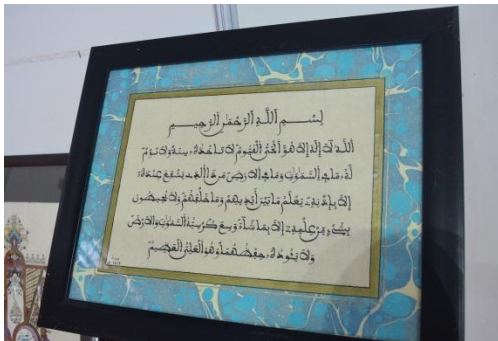 بسم الله الرحمن الرحيم
الله لا إله إلا هو الحي القيوم لا تأخذه سنة ولا نوم
له ما في السموت وما في الارض من ذا الذي يشفع عنده
إلا بإذنه يعلم ما بين أيديهم وما خلفهم ولا يحيطون
بشيء من علمه إلا بما شاء وسع كرسيه السموت والارض
ولا يئوده حفظهما وهو العلي العظيم